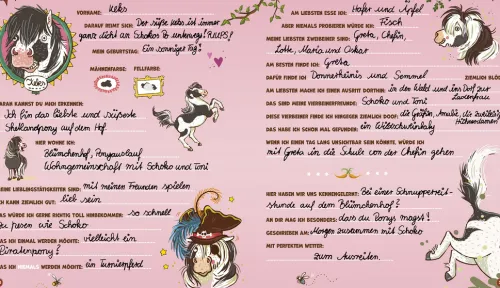 VORNAME: Keks
DARAUF REIMT SICH: Der süße Keks ist immer
ganz dicht an Schokos Po unterwegs! PUUUPS!
MEIN GEBURTSTAG: Ein sonniger Tag!
MÄHNENFARBE: FELLFARBE:
Keks
DARAN KANNST DU MICH ERKENNEN:
Ich bin das liebste und süßeste
Shetlandpony auf dem Hof
HIER WOHNE ICH:
Blümchenhof, Ponyauslauf
Wohngemeinschaft mit Schoko und Toni
MEINE LIEBLINGSTÄTIGKEITEN SIND: mit meinen Freunden spielen
ICH KANN ZIEMLICH GUT: lieb sein
DAS WÜRDE ICH GERNE RICHTIG TOLL HINBEKOMMEN: so schnell
zu fressen wie Schoko
DAS ICH EINMAL WERDEN MÖCHTE: vielleicht ein
Piratenpony?
DAS ICH NIEMALS WERDEN MÖCHTE: ein Turnierpferd
AM LIEBSTEN ESSE ICH: Hafer und Äpfel
ABER NIEMALS PROBIEREN WÜRDE ICH: Fisch
MEINE LIEBSTEN ZWEIBEINER SIND: Greta, Chefin,
Lotte, Mario und Oskar
AM BESTEN FINDE ICH: Greta
DOOF FINDE ICH: Donnerhennis und Semmel
AM LIEBSTEN MACHE ICH EINEN AUSRITT DORTHIN: in den Wald und ins Dorf zur
DAS SIND MEINE VIERBEINERFREUNDE: Schoko und Toni
DIESE VIERBEINER FINDE ICH HINGEGEN ZIEMLICH DOOF: die Gräfin, Amalie, die
DAS HABE ICH SCHON MAL GEFUNDEN: ein Wildschweinbaby
WENN ICH EINEN TAG LANG UNSICHTBAR SEIN KÖNNTE, WÜRDE ICH
mit Greta in die Schule von der Chefin gehen
HIER HABEN WIR UNS KENNENGELERNT: Bei einer Schnupperreit-
stunde auf dem Blümchenhof?
AN DIR MAG ICH BESONDERS: dass du Ponys magst!
GESCHRIEBEN AM: Morgen zusammen mit Schoko
MIT PERFEKTEM WETTER:
zum Ausreiten.